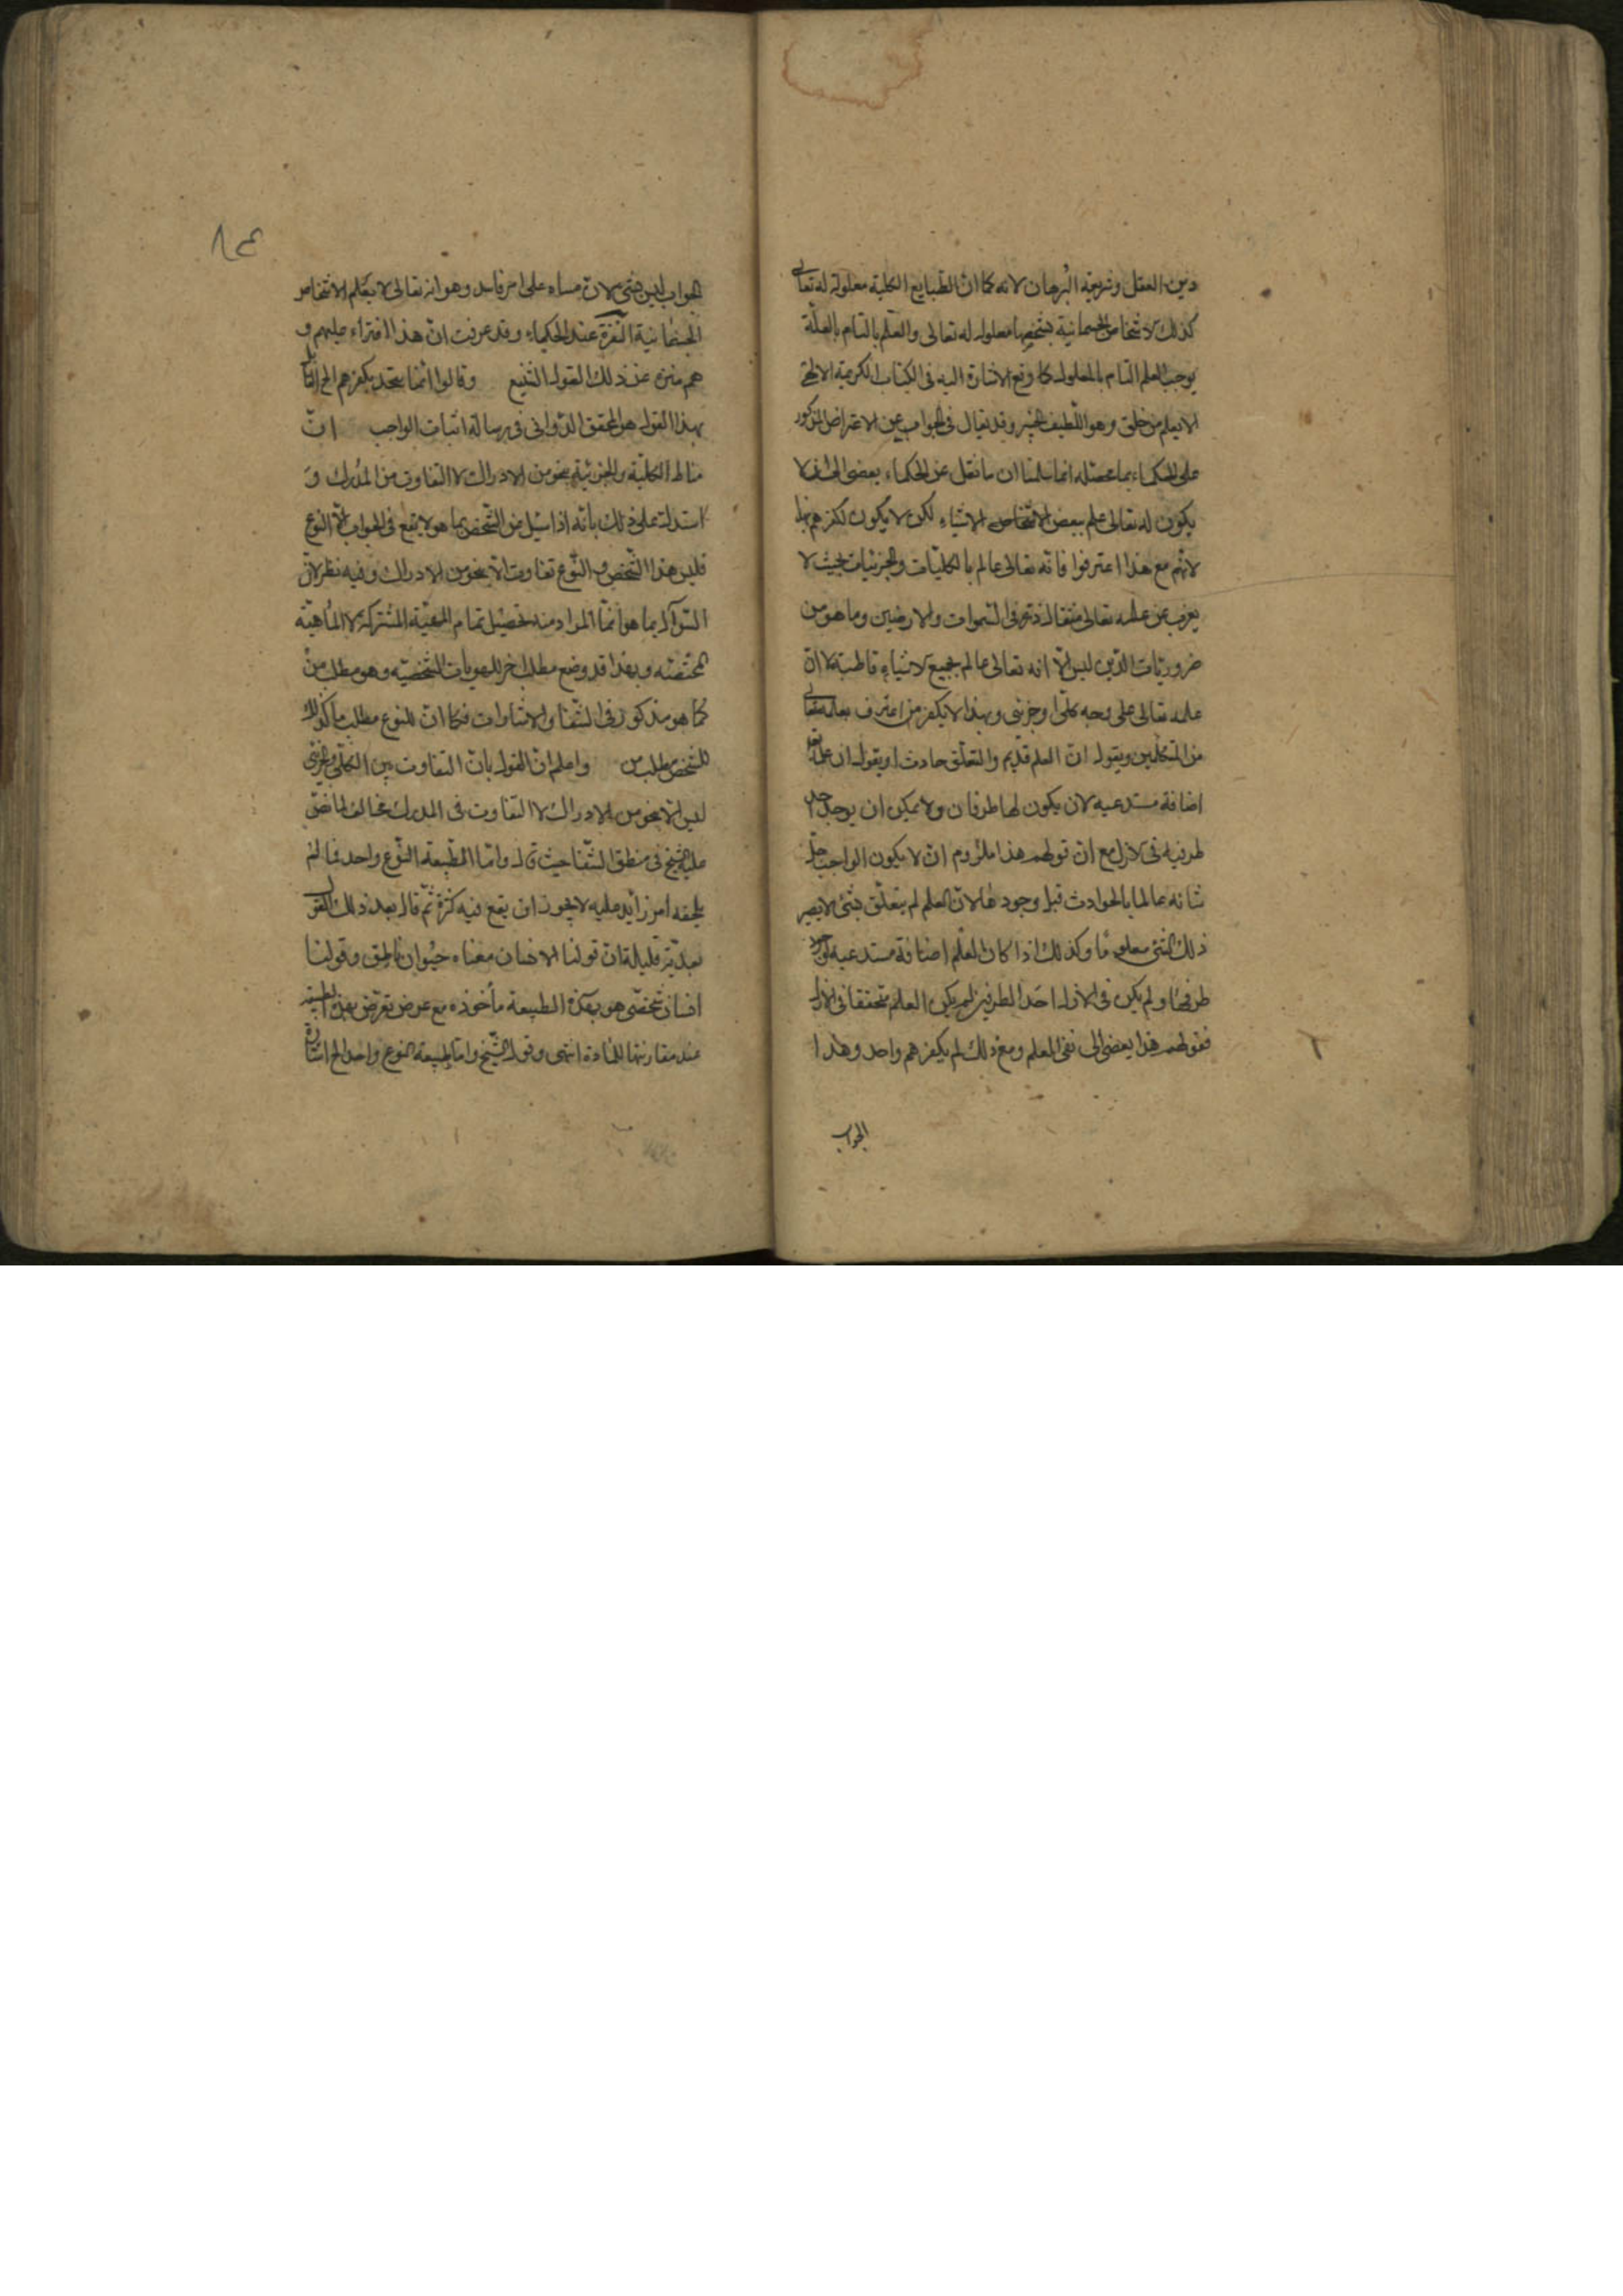 دين العقل وشريعة البرهان لانه كما ان الطبايع الكلية معلولة له تعالى
كذلك الاشخاص الجسمانية بشخصها معلولة له تعالى والعلم التام بالعلة
يوجب العلم التام بالمعلول كما وقع الاشارة اليه فى الكتاب الكريم الالهى
الا يعلم من خلق وهو اللطيف الخبير وقد يقال فى الجواب عن الاعتراض المذكور
على الحكماء بما محصله انما سلمنا ان ما نقل عن الحكماء يفضى الى ان لا
يكون له تعالى علم ببعض الاشخاص الاشياء لكن لا يكون كفرهم بهذا
لانهم مع هذا اعترفوا فانه تعالى عالم بالكليات والجزئيات بحيث لا
يعزب عن علمه تعالى مثقال ذرة فى السموات والارضين وما هو من
ضروريات الدين ليس الا انه تعالى عالم بجميع الاشياء قاطبة لا ان
علمه تعالى على وجه كلى او جزئى وبهذا لا يكفر من اعترف بعلمه تعالى
من المتكلمين ويقول ان العلم قديم والتعلق حادث او يقول ان علمه تعالى
اضافة مستدعية لان يكون لها طرفان ولا يمكن ان يوجد احد
طرفيه فى الازل مع ان قولهم هذا ملزوم ان لا يكون الواجب جل
شانه عالما بالحوادث قبل وجودها لان العلم لم يتعلق بشئ لا يصير
ذلك الشئ معلوما وكذلك اذا كان العلم اضافة مستدعية لوجود
طرفها ولم يكن فى الازل احد الطرفين لم يكن العلم متحققا فى الازل
فقولهم هذا يفضى الى نفى العلم ومع ذلك لم يكفرهم واحد وهذا
الجواب
الجواب ليس بشئ لان مبناه على امر فاسد وهو انه تعالى لا يعلم الاشخاص
الجسمانية المتغيرة عند الحكماء وقد عرفت ان هذا افتراء عليهم و
هم منزه عن ذلك القول الشنيع وقالوا انما يتجه تكفرهم الخ القائل
بهذا القول هو المحقق الدوانى فى رسالة اثبات الواجب ان
مناط الكلية والجزئية بنحو من الادراك لا التفاوت من المدرك و
استدل على ذلك بانه اذا سئل عن الشخص بما هو لا يقع فى الجواب الا النوع
فليس هذا الشخص والنوع تفاوت الا بنحو من الادراك وفيه نظر لان
السوال بما هو انما المراد منه تحصيل تمام المهية المشتركة لا الماهية
المختصة وبهذا قد وضع مطلب اخر للهويات الشخصية وهو مطلب من
كما هو مذكور فى الشفا والاشارات فكما ان للنوع مطلب ما كذلك
للشخص مطلب من واعلم ان القول بان التفاوت بين الكلى والجزئى
ليس الا بنحو من الادراك لا التفاوت فى المدرك مخالف لما نص
عليه الشيخ فى منطق الشفا حيث قال واما الطبيعة النوع واحد فما لم
يلحقه امر زايد عليه لا يجوز ان يقع فيه كثرة ثم قال بعد ذلك القول
بعدية قليلة ان قولنا الانسان معناه حيوان ناطق وقولنا
انسان شخصى هو بهذه الطبيعة مأخوذه مع عرض تعرض بهذه الطبيعة
عند مقارنتها للمادة انتهى وقول الشيخ واما طبيعة النوع واحد الخ اشارة